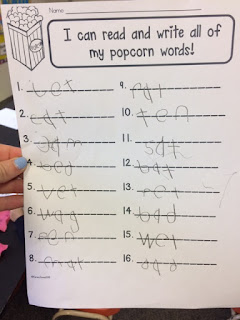 Name
I can read and write all of
my popcorn words!
1. bet
2. cat
3. jam
4. bed
5. vet
6. wag
7. pen
8. mat
9. rat
10. ten
11. sat
12. bat
13. net
14. bad
15. wet
16. dad